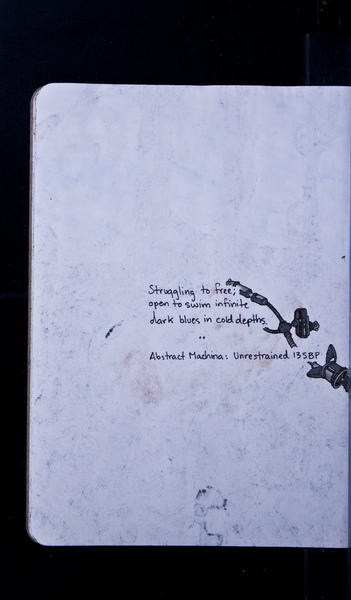 Struggling to free;
open to swim infinite
dark blues in cold depths.
Abstract Machina: Unrestrained 13SBP